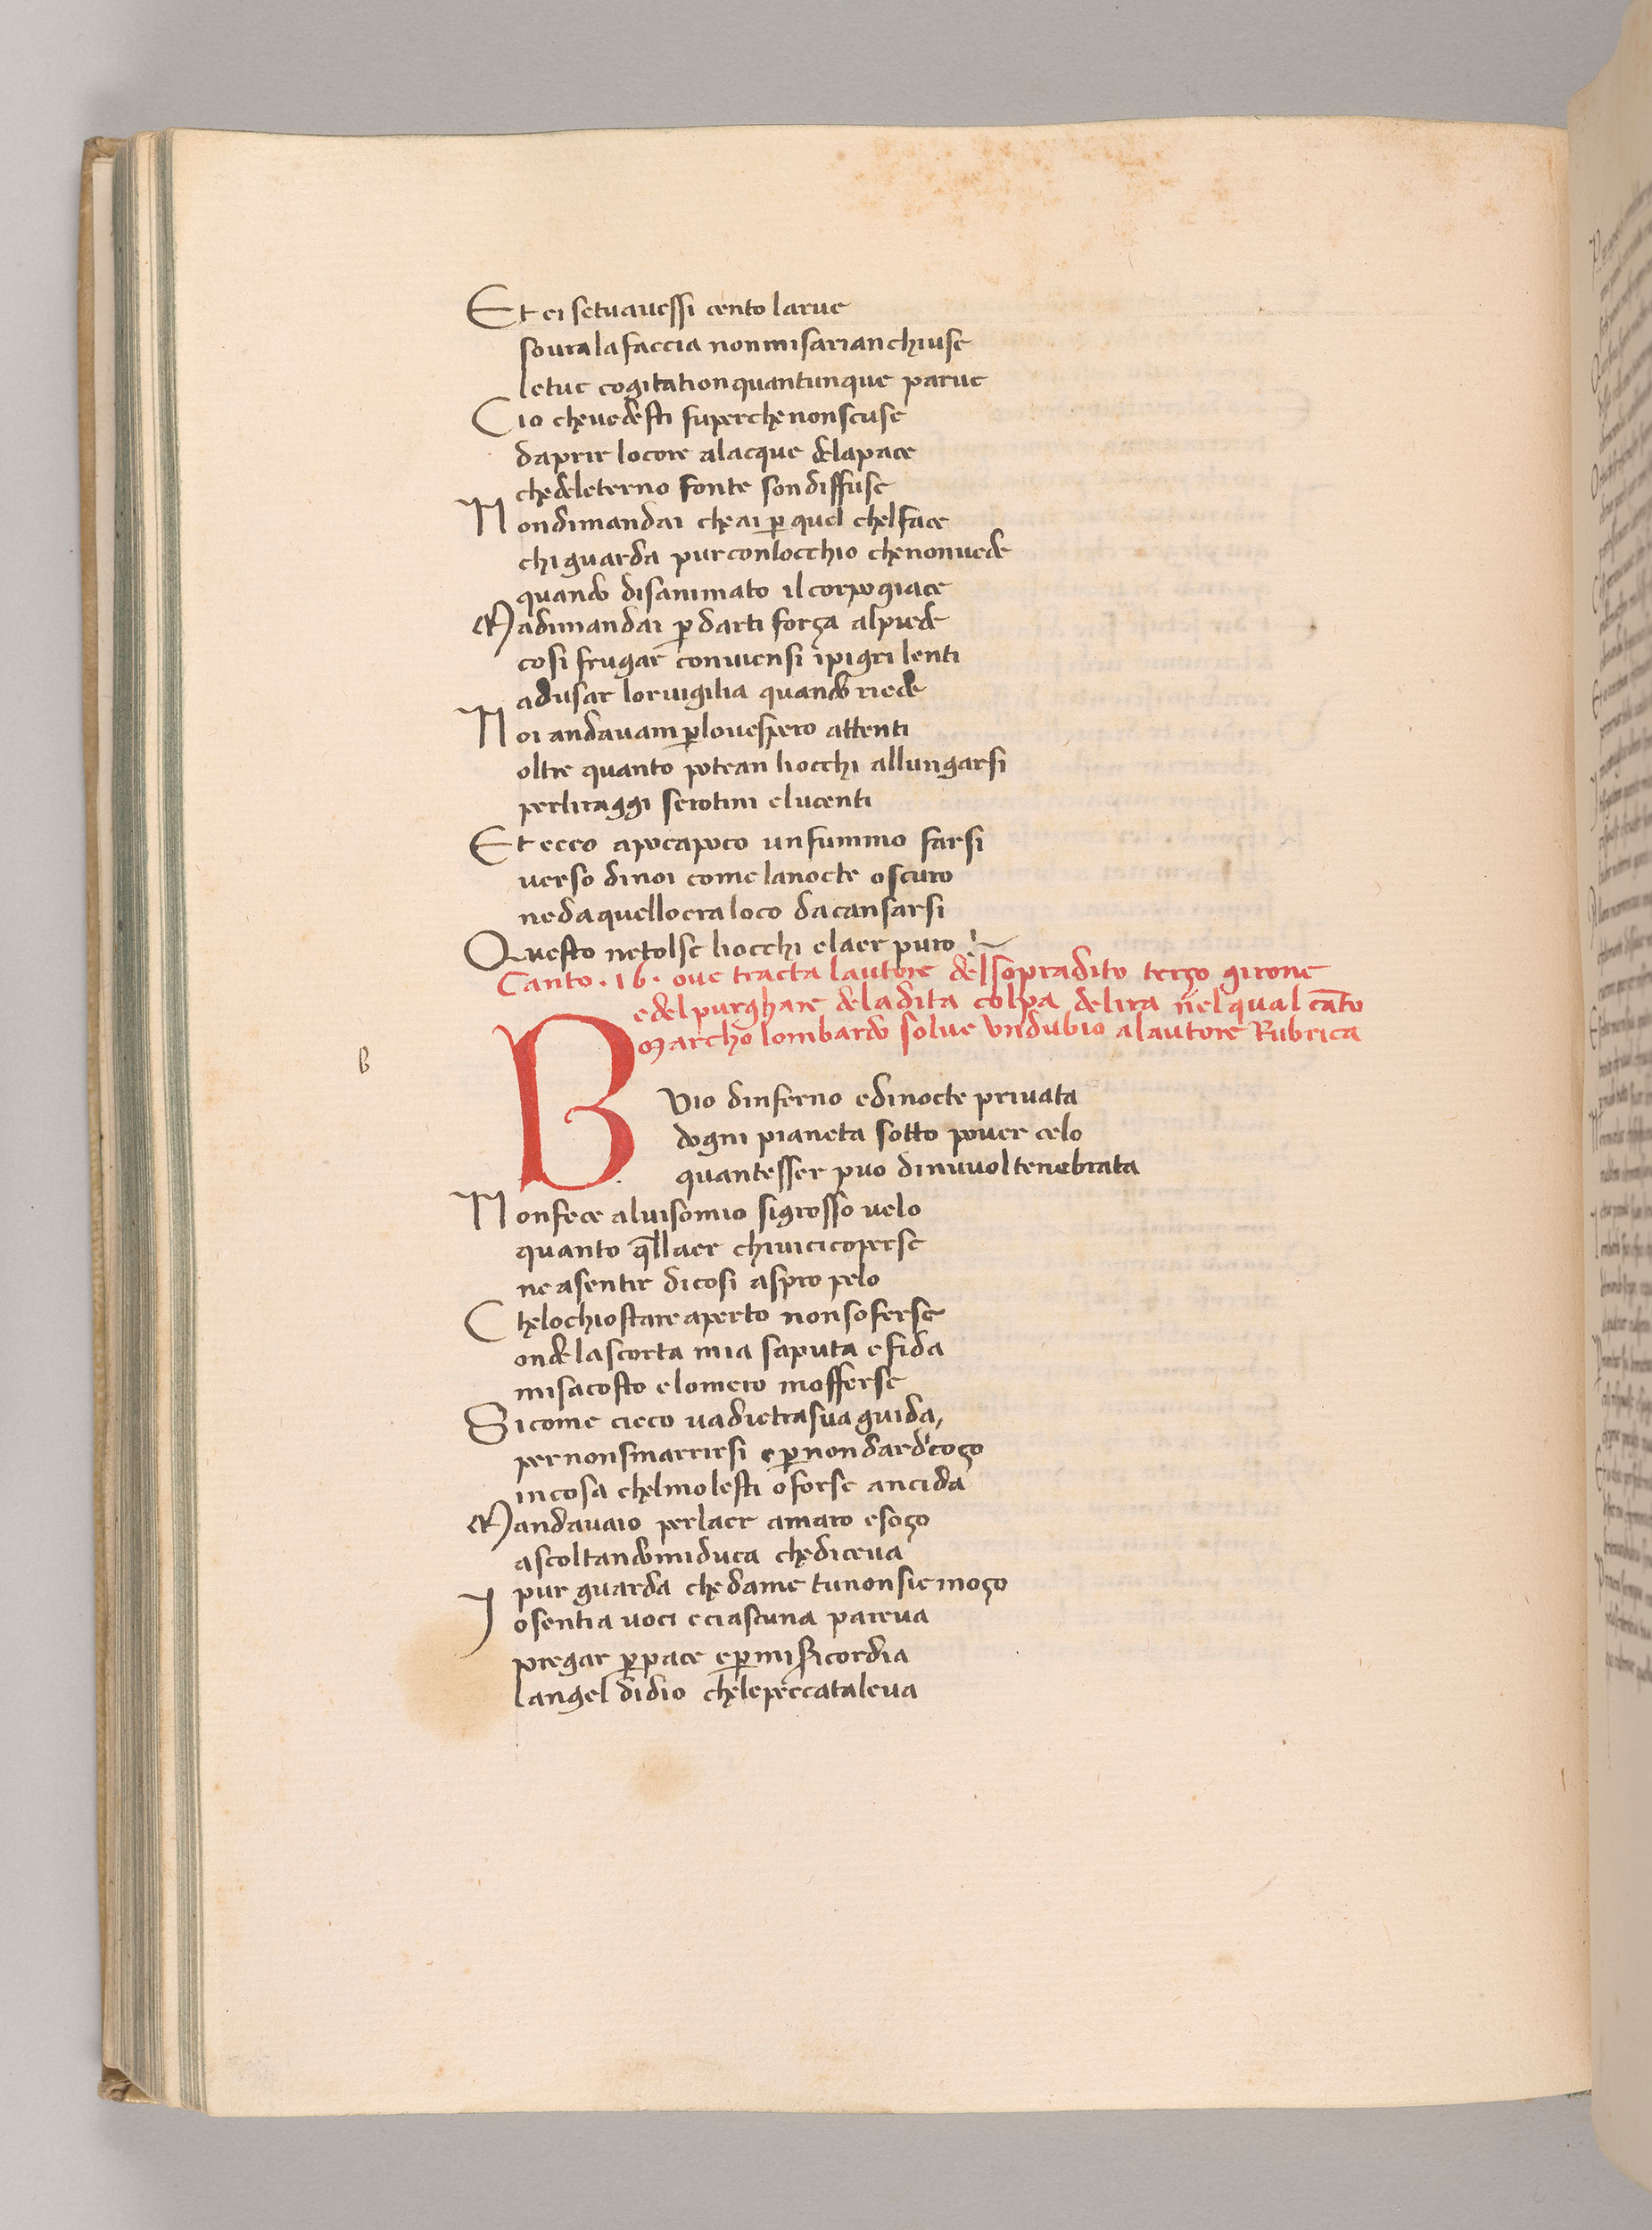 Et ei setuavessi cento larue
soura la faccia non mi sarian chiuse
le tue cogitation quantunque parue
Cio che uedesti fu perche non scuse
daprir locore alacque dela pace
che deleterno fonte son diffuse
Non dimandai che ai ꝑ quel chel face
chi guarda pur conlocchio che non uede
quando disanimato il corpo giace
Ma dimandai ꝑ darti força al piede
cosi frugar conuiensi i pigri lenti
ad usar lor uigilia quando riede
Noi andauam ꝑ lo uespero attenti
oltre quanto potean liocchi allungarsi
per li raggi serotini e lucenti
Et ecco apocapoco un fummo farsi
uerso dinoi come la nocte oscuro
ne da quello era loco da cansarsi
Questo ne tolse liocchi e laer puro
Canto .16. oue tracta lautore del sopradito terço girone
e del purghare dela dita colpa de lira nel qual cāto
Marcho lombardo solue vn dubio al autore Rubrica
B
Buio dinferno e di nocte priuata
dogni pianeta sotto pouer celo
quantesser puo di nuuol tenebrata
Non fece al uiso mio si grosso uelo
quanto q̄llaer chiui ci coperse
ne a sentir di cosi aspro pelo
Che lochio stare aperto non soferse
onde la scorta mia saputa e fida
mi sacosto e lomero mofferse
Si come cieco ua dietra sua guida
per non smarrirsi e ꝑ non dar di coço
in cosa chel molesti o forse ancida
Mandauaio per laer amaro e soço
ascoltando mi duca che diceua
pur guarda che da me tu non sie moço
Io sentia uoci e ciascuna pareua
pregar ꝑ pace e ꝑ misericordia
langel didio che le peccata leua